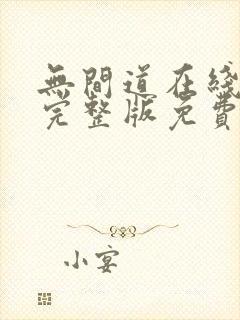 無間道在綫
完整版免費
小宴